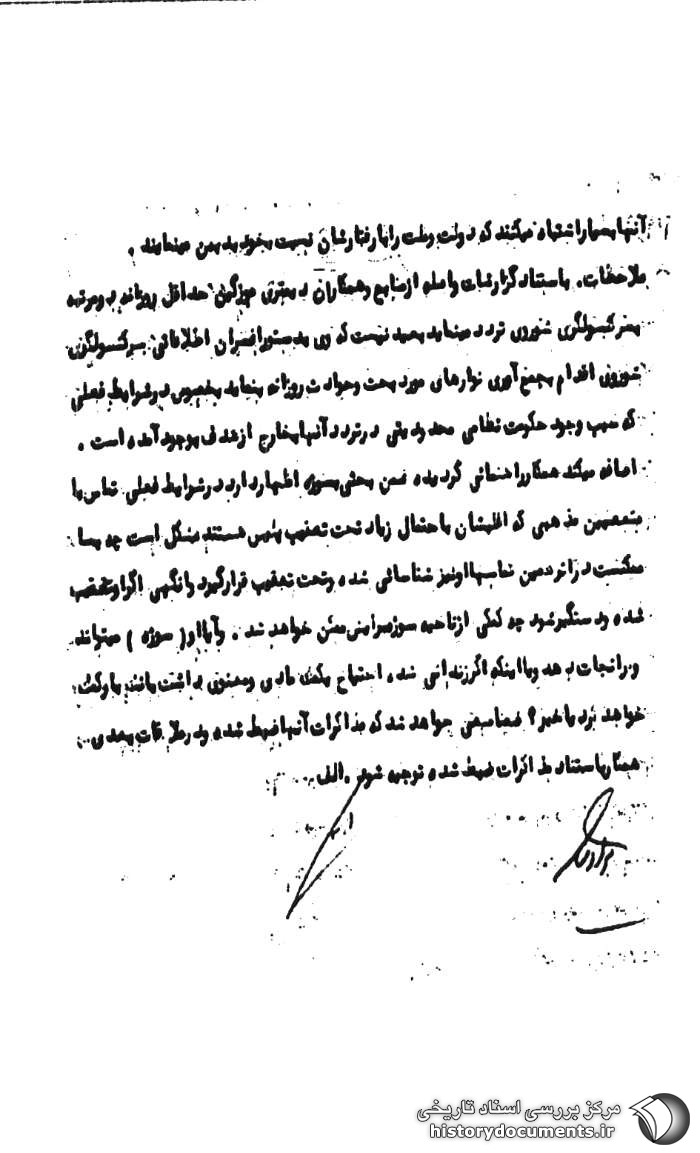 آنها بسیار اشتباه میکنند که دولت وملت را با رفتارشان نسبت بخود بدبین مینمایند .
ملاحظات. باستناد گزارشات واصله از منابع وهمکاران حداقل روزانه دو مرتبه
بسر کنسولگری شوروی تردد مینماید بعید نیست که وی بدستور افسران اطلاعاتی سرکنسولگری
شوروی اقدام بجمع آوری نوارهای مورد بحث وحوادث روزانه بنماید بخصوص در شرایط فعلی
که سبب وجود حکومت نظامی محدودیتی در تردد آنها بخارج از هدف بوجود آمده است .
اضافه میکند همکار راهنمائی گردیده ضمن بحثی بسوژه اظهار دارد در شرایط فعلی تماس با
متعصبین مذهبی که اطمینان باحتمال زیاد تحت تعقیب پلیس هستند مشکل است چه بسا
ممکنست در اثر همین تماسها اونیز شناسائی شده وتحت تعقیب قرار گیرد وانگهی اگر او تعقیب
شده ودستگیر شود چه کمکی از ناحیه سوژه برایش ممکن خواهد شد . وآیا او ( سوژه ) میتواند
ویرا نجات بدهد ویا اینکه اگر زندانی شد ، احتیاج بکمک مادی ومعنوی داشت مانند یا وکمک
خواهد کرد یا خیر ؟ ضمنا سعی خواهد شد که مذاکرات آنها ضبط شده ودر ملاقات بعدی
همکار باستناد مذاکرات ضبط شده توجیه شود . الف
مرکز بررسی اسناد تاریخی
historydocuments.ir